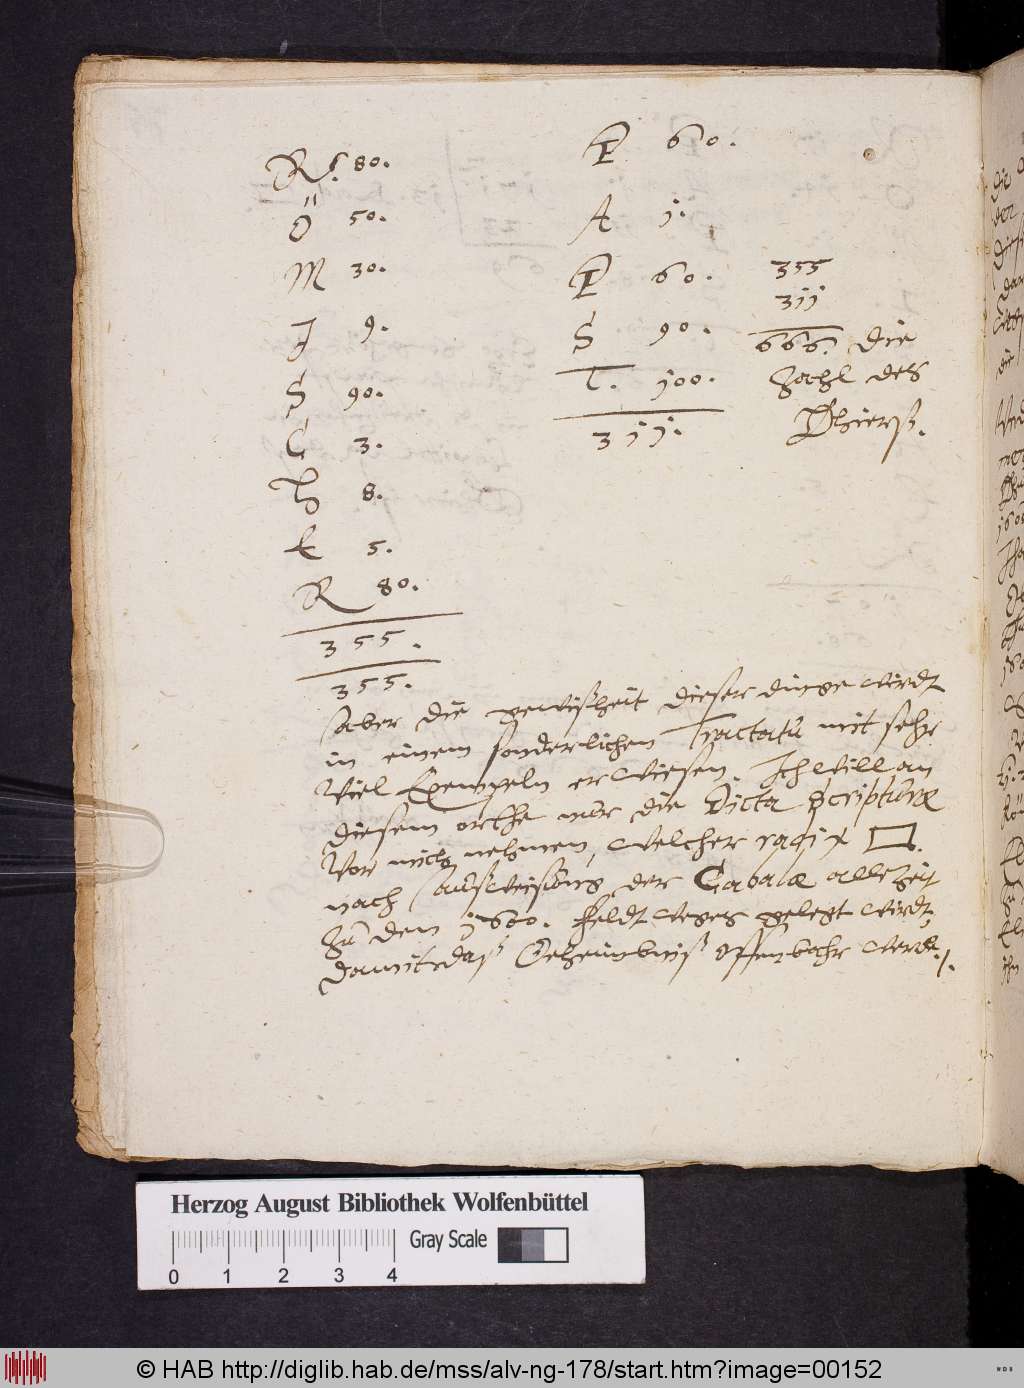 R. 80.
Ö 50.
M 30.
I 9.
S 90.
C 3.
H 8.
E 5.
R 80.
355.
355.
P 60.
A j.
P 60.
S 90.
T. j00.
3jj.
355
3jj
666. die
Zahl des
Thierß.
Aber die gewißheit dieser dinge wirdt
in einem sonderlichen Tractatu mit sehr
viel Exempeln erwiesen. Ich will an
diesem orthe nur die Dicta Scripturæ
vor mich nehmen, welcher radix □.
nach Außweisung der Cabalæ allezeit
zu dem j600. feldtweges gelegt wirdt,
damit daß Geheimbniß offenbahr werde.
Herzog August Bibliothek Wolfenbüttel
Gray Scale
0 1 2 3 4
© HAB http://diglib.hab.de/mss/alv-ng-178/start.htm?image=00152